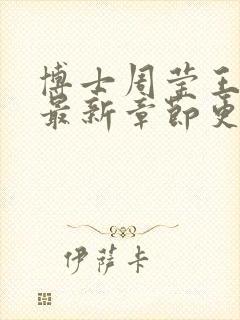 博士周莹王
最新章节更
伊萨卡